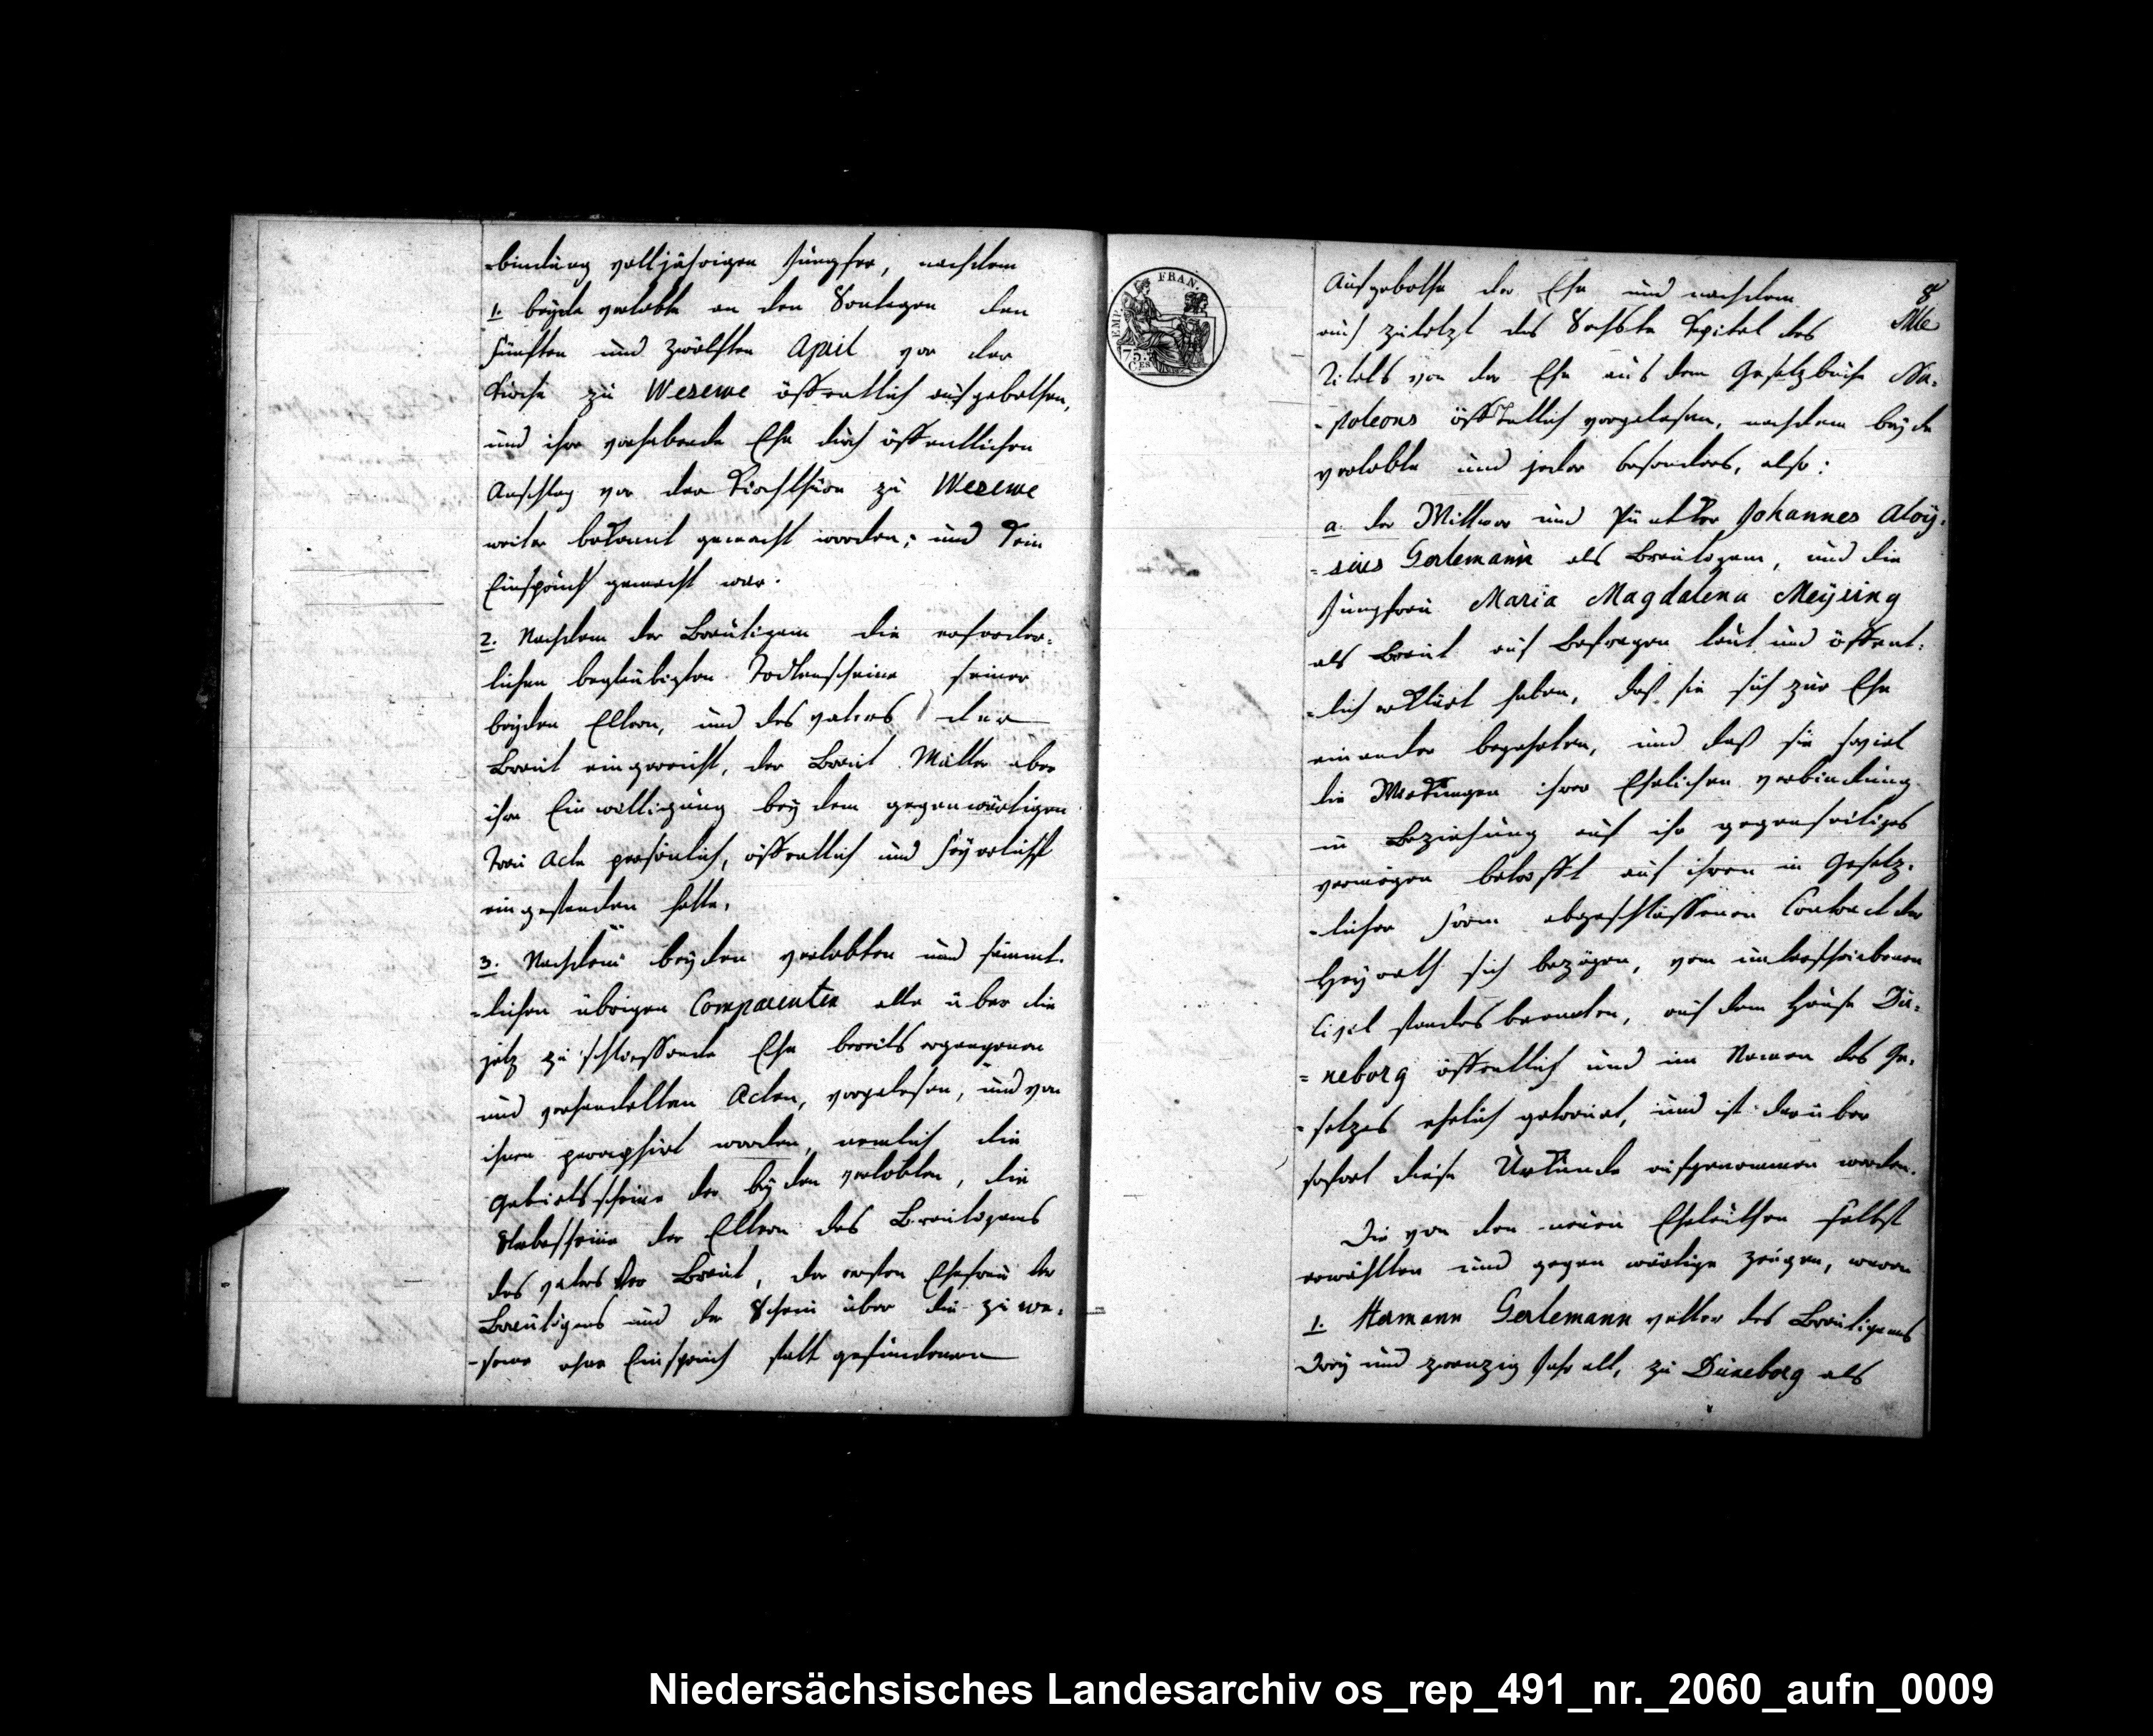 -bindung volljährigen Jungfer, nachdem
1. beyde verlobte an den Sontagen den
fünften und zwölften April vor der
Kirche zu Wesewe öffentlich aufgebothen,
und ihre vorhabende Ehe durch öffentlichen
Anschlag vor der Kirchthüre zu Wesewe
weiter bekannt gemacht worden; und kein
Einspruch gemacht war.
2. Nachdem der Bräutigam die erforder-
lichen beglaubigten Todtenscheine seiner
beyden Eltern, und des Vaters der
Braut eingereicht, der Braut Mutter aber
ihre Einwilligung bey dem gegenwärtigen
Trau Acte persönlich, öffentlich und feyerlichst
eingestanden hatte.
3. Nachdem beyden verlobten und sämmt-
-lichen übrigen Comparenten alle über die
jetz zu schliessende Ehe bereits ergangenen
und verhandelten Acten, vorgelesen, und von
ihnen paraphirt worden, nemlich die
Geburtsscheine der beyden verlobten, die
Sterbescheine der Eltern des Bräutigams
des Vaters der Braut, der ersten Ehefrau der
Bräutigams und der Schein über die zu we-
-sewe ohne Einspruch statt gefundenen
EMP. FRAN.
75.
CES
8
Aufgebothe der Ehe und nachdem
auch zuletzt das Sechste Kapitel des
Titels von der Ehe aus dem Gesetzbuche Na-
-poleons öffentlich vorgelesen, nachdem beyde
verlobte und jeder besonders, also:
a. der Wittwer und Johannes Aloy-
-sius Gerlemann als Bräutigam, und die
Jungfrau Maria Magdalena Meyring
als Braut auf Befragen laut und öffent-
-lich erklärt haben, daß sie sich zur Ehe
einander begehrten, und daß sie soviel
die Wirkungen ihrer Ehelichen Verbindung
in Beziehung auf ihr gegenseitiges
vermögen betrifft auf ihren in Gesetz-
-licher Form abgeschlossenen Contract der
Heyrath sich bezögen, vom unterschriebenen
Civil standes beamten, auf dem Hause Dü-
=neborg öffentlich und im Namen des Ge-
-setzes ehelich getrauet, und ist darüber
sofort diese Urkunde aufgenommen worden.
Die von den neuen Eheleuthen selbst
erwählten und gegen wärtige Zeugen, waren
1. Hermann Gerlemann vetter des Bräutigams
Drey und zwanzig Jahr alt, zu Düneborg als
Niedersächsisches Landesarchiv os_rep_491_nr._2060_aufn_0009